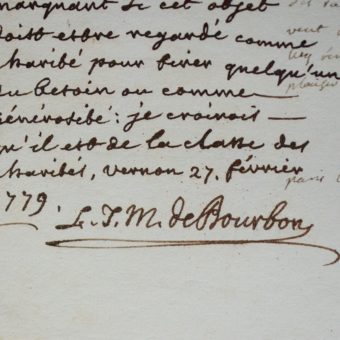 marquant si cet objet
doist estre regardé comme
charité pour tirer quelqu'un
du besoin ou comme
générosité: je croirois —
qu'il est de la classe des
charités, vernon 27. février
1779.
L. J. M. de Bourbon
veut
plaisir
paris